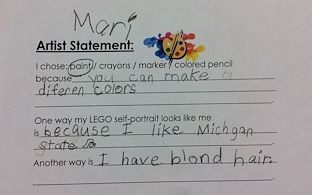 Mari
Artist Statement:
I chose: paint / crayons / marker / colored pencil
because you can make a
diferen colors
One way my LEGO self-portrait looks like me
is because I like Michgan
state
Another way is I have blond hair.